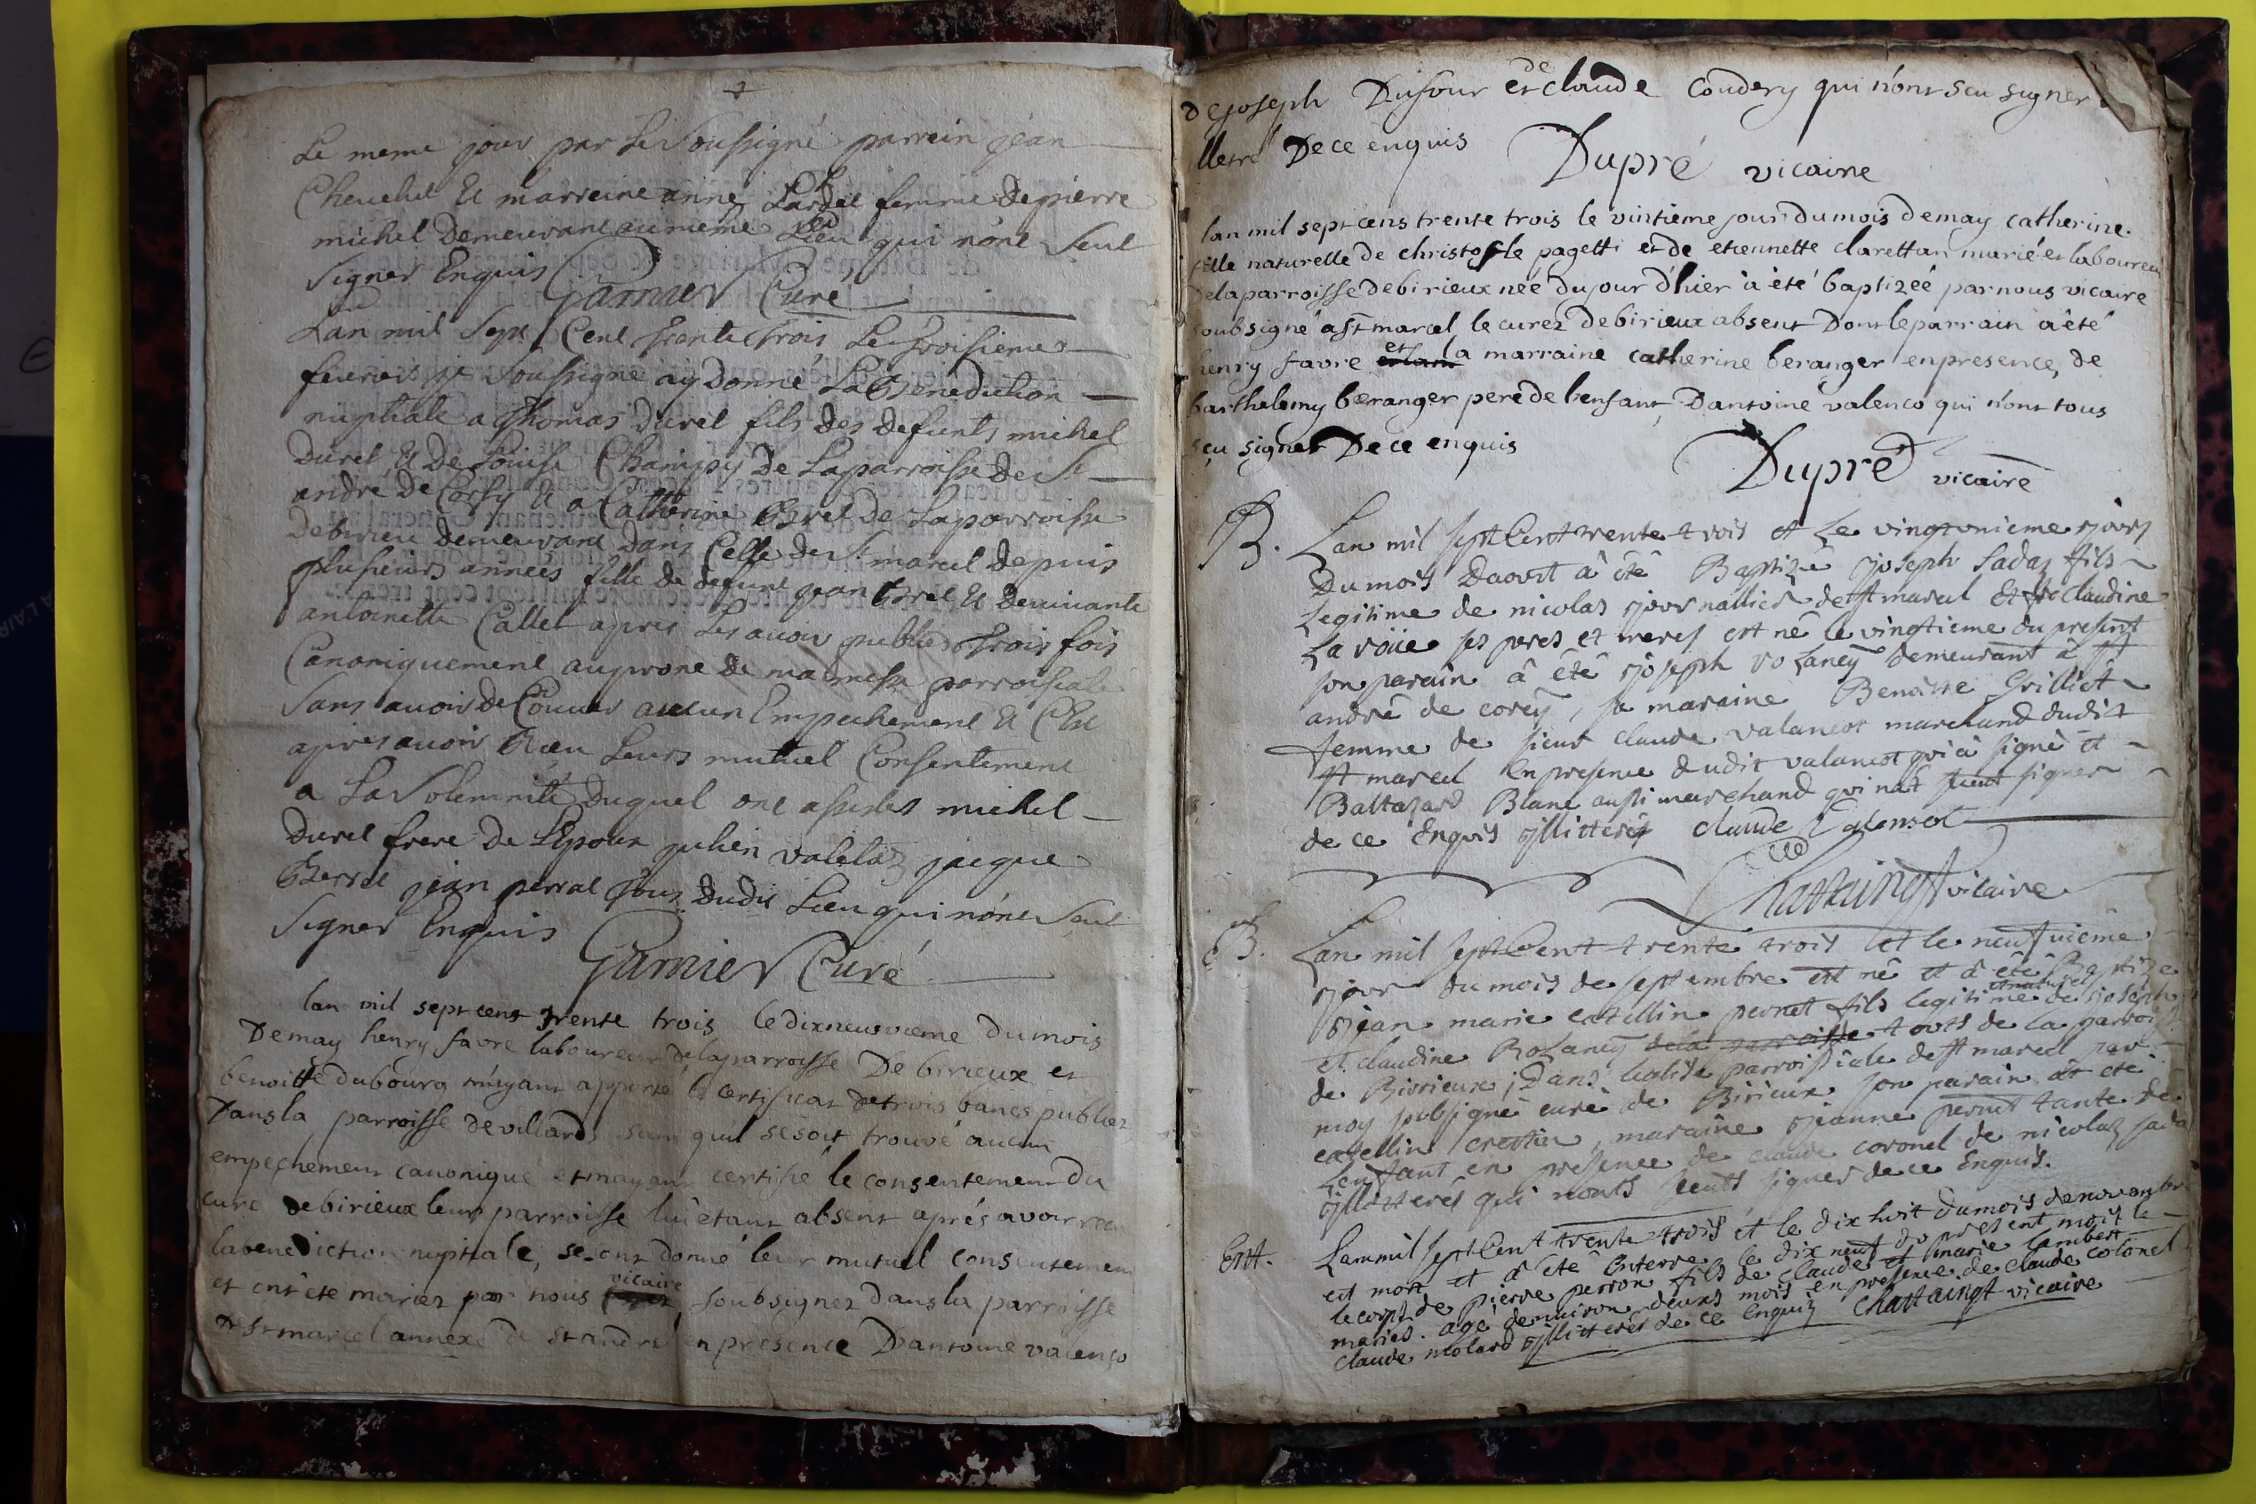 Le meme jour par Le Soussigné parrein jean
Chevelut et marreine anne Lardet femme de pierre
michel demeurant au meme Lieu qui nont Seut
Signer Enquis Garnier Curé
Lan mil Sept Cent trente trois Le troisieme
fevrier je soussigne ay donné La Benediction
nuptiale a Thomas durel fils des defunts michel
durel et De Louise Champy De Laparroisse de St
andre de Corsy et a Catherine Brel de Laparroisse
de birieu demeurant dans Celle de St marcel depuis
plusieurs années fille de defunt jean Brel et devivante
antoinette Callet apres Les avoir publies trois fois
Canoniquement au prone de ma messe parroissiale
Sans avoir deCouver aucun Empechement et Cela
apres avoir Receu Leurs mutuel Consentement
a La Solemnité duquel ont assistes michel
durel frere de LEpoux julien valelaz jacque
Berral jean perral tous dudit Lieu qui nont Seut
Signer Enquis
Garnier Curé
lan mil sept cens trente trois le dixneuvieme du mois
Demay henry favre laboureur de laparroisse De birieux et
benoitte dubourg m'ayant apporté le certificat detrois bancs publiez
Dans la parroisse de villards sans quil se soit trouvé aucun
empechement canonique et mayant certifié le consentement Du
curé de birieux leur parroisse lui etant absent aprés avoir receu
la benediction nuptiale, se sont donné leur mutuel consentement
et ont été mariez par nous vicaire soubsignez dans la parroisse
De St marcel annexe de St andré en presence Dantoine valenço
de joseph Dufour et de claude Coudery qui n'ont sçu signer
De ce enquis
Dupré vicaire
lan mil sept cens trente trois le vintieme jour du mois demay catherine
fille naturelle de christofle pagetti et de etiennette clarettan marié et laboureur
De la parroisse de birieux née du jour d'hier à été baptizéé par nous vicaire
soubsigné a St marcel le curez de birieux absent Dont le parrain à été
henry favre et la marraine catherine beranger en presence, de
barthelemy bæranger pere de l'enfant, Dantoine valenço qui n'ont tous
sçu signer De ce enquis
Dupré vicaire
B. Lan mil sept Cent trente trois et Le vingtunieme jours
Du mois Daoust à êté Baptizé joseph Sadaz fils
Legitime de nicolas journallier de St marcel Et de Claudine
La voïie ses peres et meres est né le vingtieme du present
son parain à êté joseph roZaney demeurant à St
andré de corcy, sa maraine Benoitte Grilliet
femme de sieur claude valancot marchand dudit
St marcel En presence dudit valancot qui à signé et
Baltazard Blanc aussi marchand qui nat sceut signer
de ce Enquis jllitteréz claude Valensot
Chattaingt vicaire
B. Lan mil sept Cent trente trois et le neufvieme
jour du mois de septembre est né et à été Baptizé
jean marie catellin pernet fils legitime et naturel de joseph
et claudine RoZaney touts de la parroisse
de Birieux; Dans leglise parroissiale de St marcel par
moy soubsigné curé de Birieux son parain at eté
catellin crestin, maraine jeanne pernet tante de
Lenfant en presence de claude coronel de nicolaz sada
jllitterés qui nonts sceuts signer de ce Enquis.
Ent. Lan mil sept Cent trente trois et le dix huit du mois de novembre
est mort et à été Enterré le dix neuf du present mois le
le corps de pierre perron fils de claude et marie lambert
mariés. agé denviron deux mois en presence de claude colonel
claude molard jllitterés de ce Enquiz Chattaingt vicaire